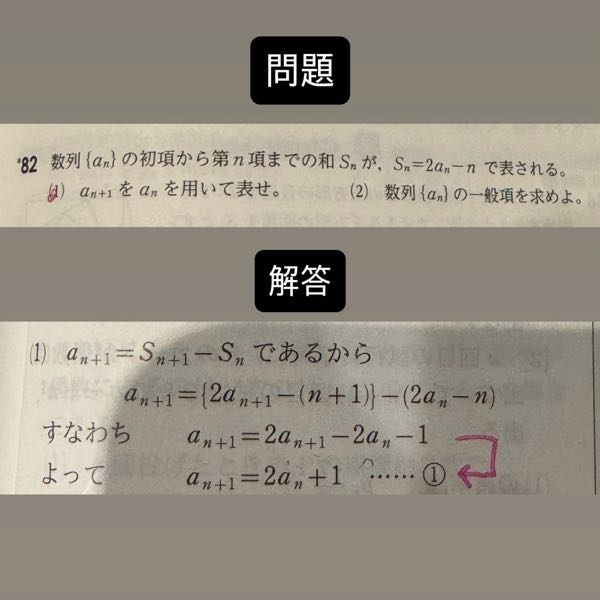 問題
*82 数列{aₙ}の初項から第n項までの和Sₙが，Sₙ=2aₙ−nで表される。
(1) aₙ₊₁をaₙを用いて表せ。 (2) 数列{aₙ}の一般項を求めよ。
解答
(1) aₙ₊₁=Sₙ₊₁−Sₙであるから
aₙ₊₁={2aₙ₊₁−(n+1)}−(2aₙ−n)
すなわち aₙ₊₁=2aₙ₊₁−2aₙ−1
よって aₙ₊₁=2aₙ+1 ……①